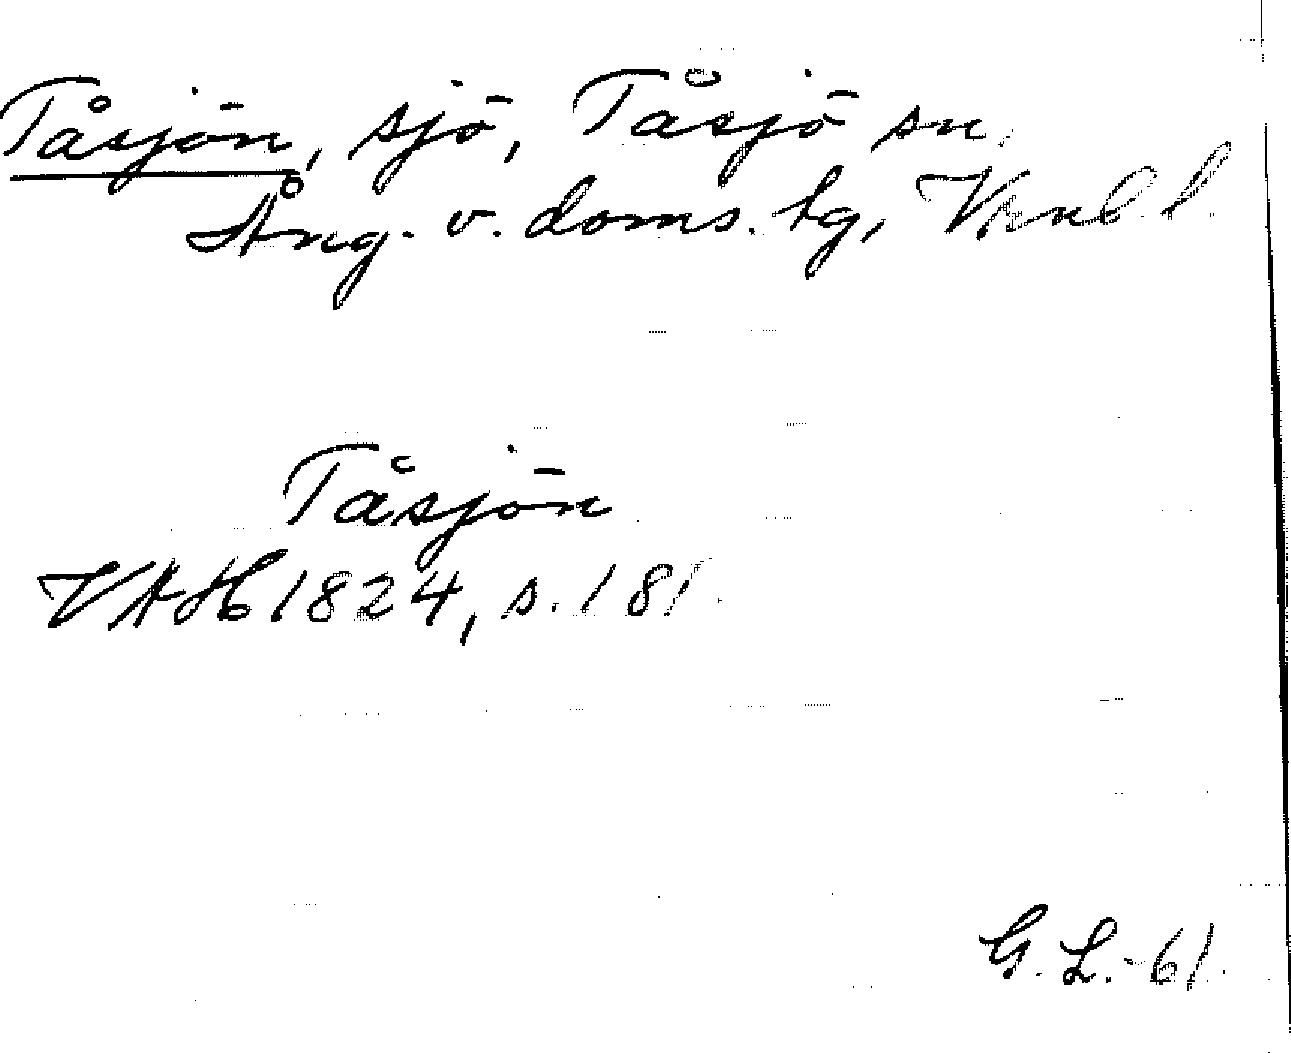 Tåsjön, sjö, Tåsjö sn.
Ång. v. doms. tg, Vrnl. l.
Tåsjön
VAH 1824, s. 181.
G. L. -61.